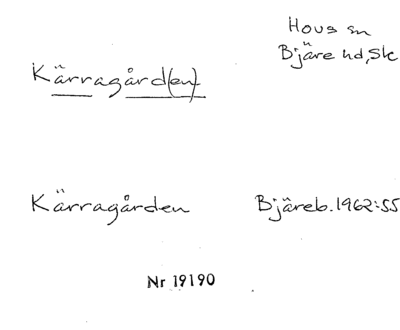 Hovs sn
Bjäre hd, Sk
Kärragård(en)
Kärragården Bjäreb. 1962:55
Nr 19190